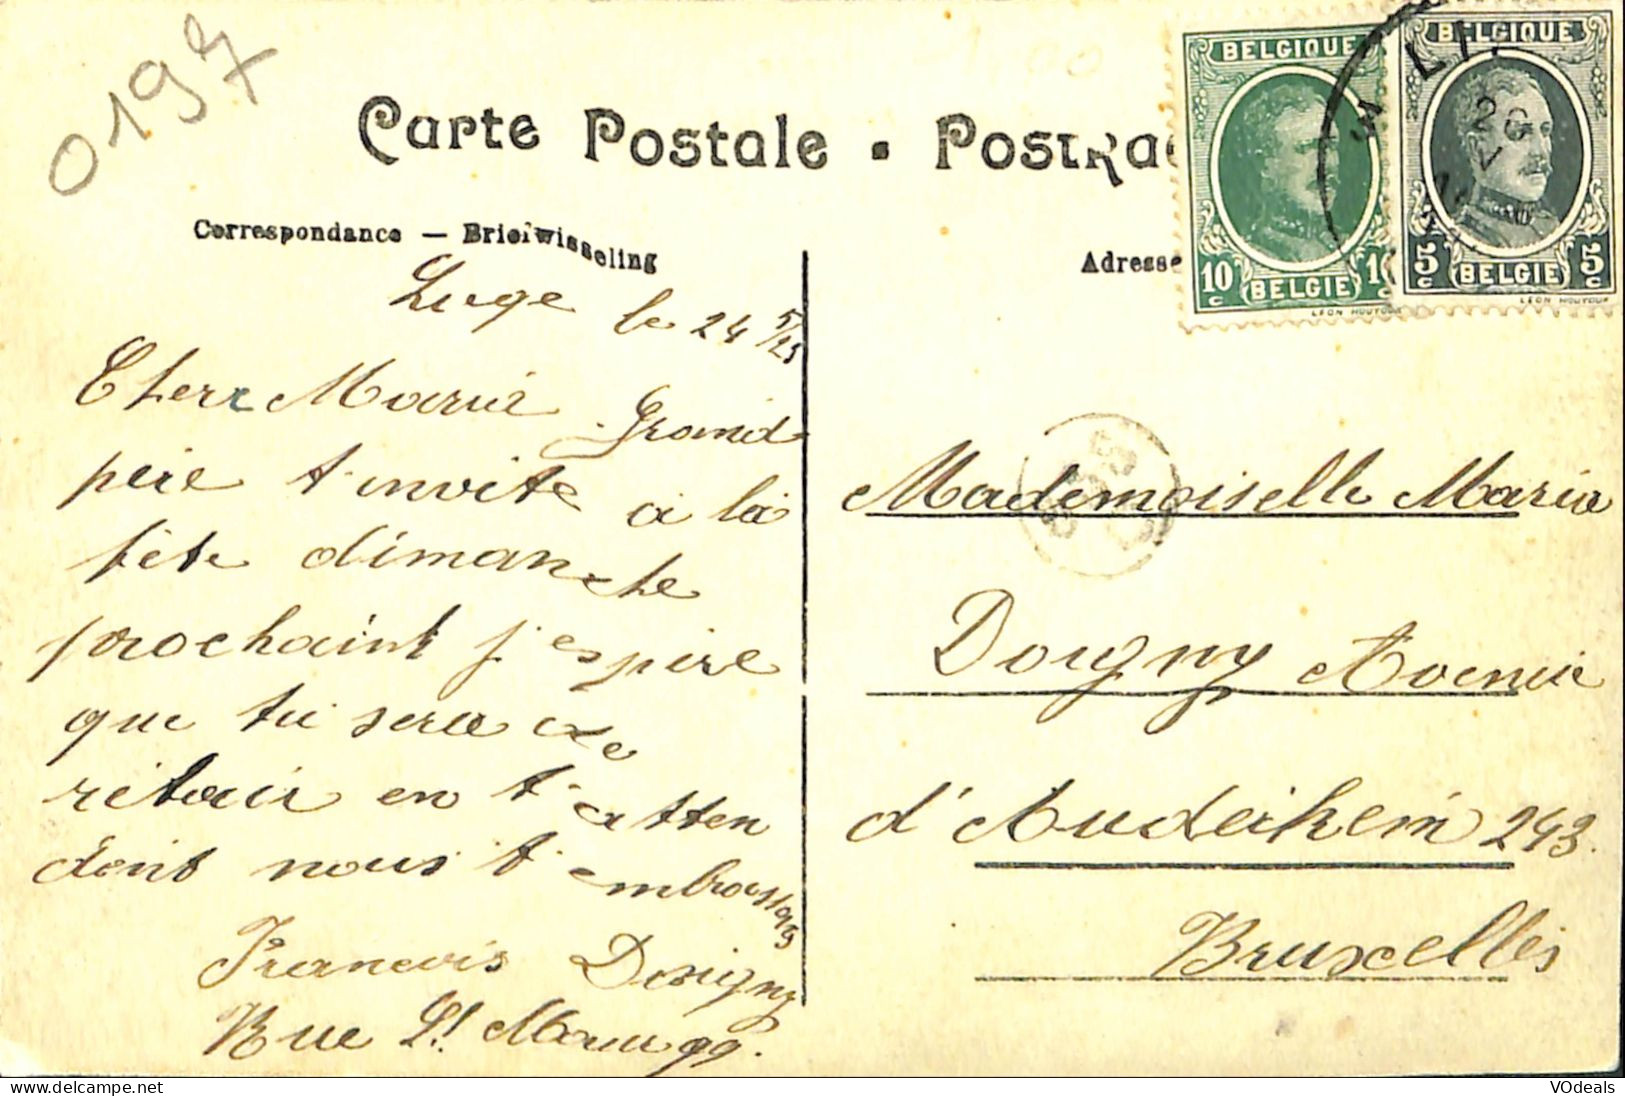 0197
Carte Postale . Postka
Correspondance — Briefwisseling
Adresse
BELGIQUE
10 c BELGIE 10 c
LÉON HOUYOUX
BELGIQUE
5 c BELGIE 5 c
LÉON HOUYOUX
26
Luge le 24 5/25
Chere Marie Grand
père t'invite à la
fête dimanche
prochaint j'espère
que tu sera de
retair en t'atten
dent nous t'embrassons
Francois Dosigny
Rue St Maur 99.
Mademoiselle Maria
Doigny Avenue
d'Auderhem 243.
Bruxelles
VOdeals